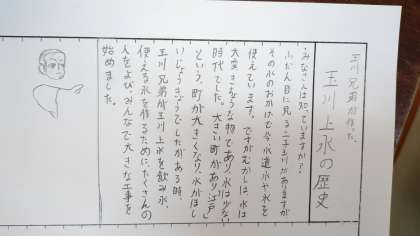 玉川兄弟が作った、
玉川上水の歴史
・みなさんは知っていますか?
ふだん目に見る二子玉川がありますが
その水のおかげで今、水道水や水を
使えています。ですがむかしは、水は
大変きちょうな物であり、水は少ない
時代でした。大きい町があり「江戸」
という、町が大きくなり、水がほし
いじょうきょうでしたがある時、
玉川兄弟が玉川上水を飲み水、
使える水を作るために、たくさんの
人をよびみんなで大きな工事を
始めました。